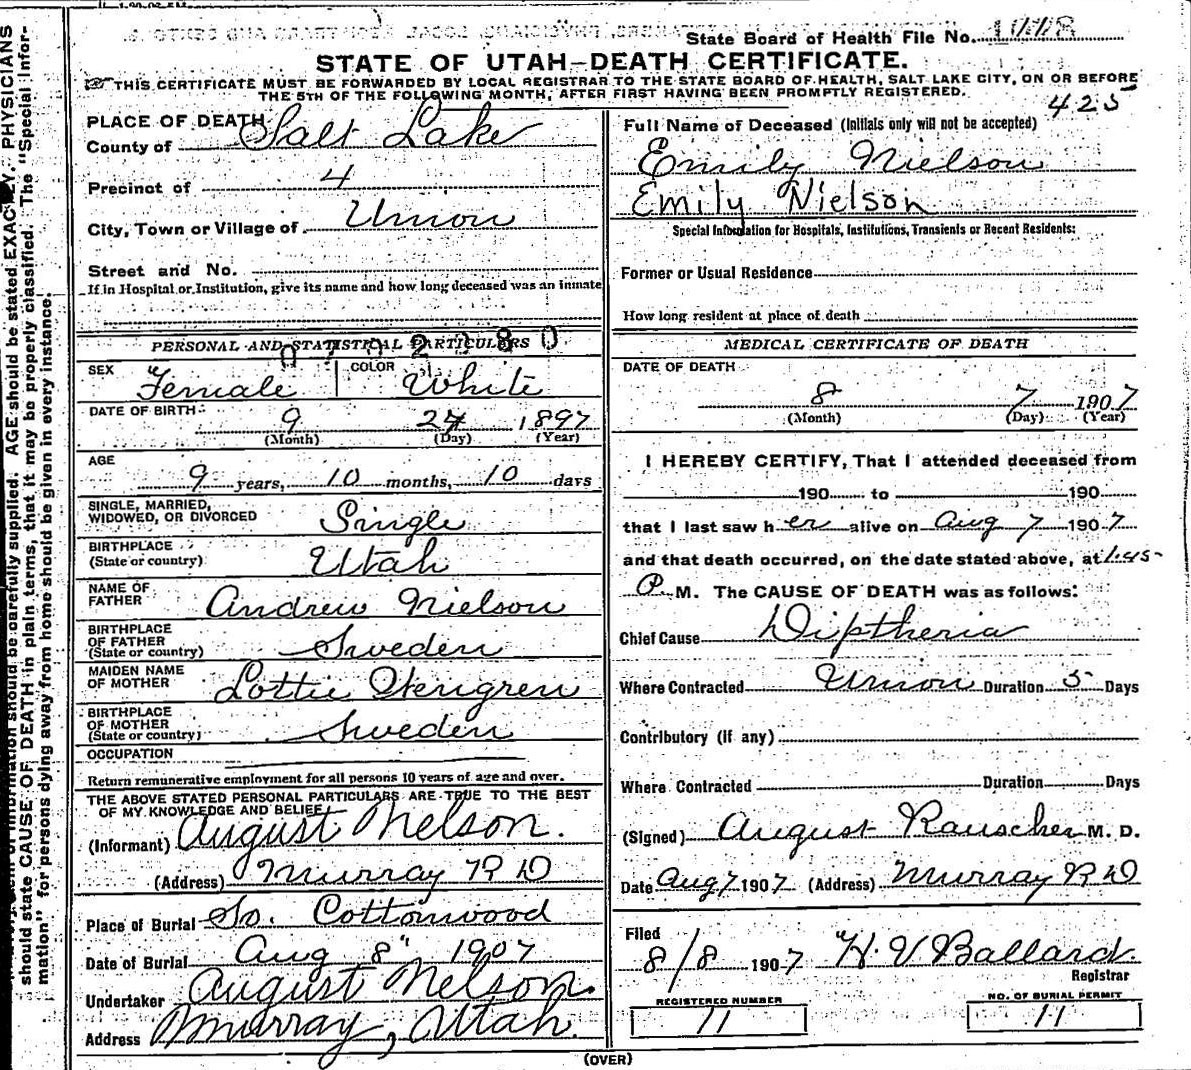 State Board of Health File No. 1118
STATE OF UTAH—DEATH CERTIFICATE.
THIS CERTIFICATE MUST BE FORWARDED BY LOCAL REGISTRAR TO THE STATE BOARD OF HEALTH, SALT LAKE CITY, ON OR BEFORE
THE 5TH OF THE FOLLOWING MONTH, AFTER FIRST HAVING BEEN PROMPTLY REGISTERED.
425
PLACE OF DEATH
County of Salt Lake
Precinct of 4
City, Town or Village of Union
Street and No.
If in Hospital or Institution, give its name and how long deceased was an inmate
PERSONAL AND STATISTICAL PARTICULARS
SEX Female COLOR White
DATE OF BIRTH 9 27 1897
(Month) (Day) (Year)
AGE
9 years, 10 months, 10 days
SINGLE, MARRIED,
WIDOWED, OR DIVORCED Single
BIRTHPLACE
(State or country) Utah
NAME OF
FATHER Andrew Nielson
BIRTHPLACE
OF FATHER
(State or country) Sweden
MAIDEN NAME
OF MOTHER Lottie Stengren
BIRTHPLACE
OF MOTHER
(State or country) Sweden
OCCUPATION
Return remunerative employment for all persons 10 years of age and over.
THE ABOVE STATED PERSONAL PARTICULARS ARE TRUE TO THE BEST
OF MY KNOWLEDGE AND BELIEF
(Informant) August Nelson.
(Address) Murray R D
Place of Burial So. Cottonwood
Date of Burial Aug 8" 1907
Undertaker August Nelson.
Address Murray, Utah.
Full Name of Deceased (Initials only will not be accepted)
Emily Nielson
Emily Nielson
Special Information for Hospitals, Institutions, Transients or Recent Residents:
Former or Usual Residence
How long resident at place of death
MEDICAL CERTIFICATE OF DEATH
DATE OF DEATH
8 7 1907
(Month) (Day) (Year)
I HEREBY CERTIFY, That I attended deceased from
190 to 190
that I last saw her alive on Aug 7 1907
and that death occurred, on the date stated above, at 1.45
P. M. The CAUSE OF DEATH was as follows:
Chief Cause Diptheria
Where Contracted Union Duration 5 Days
Contributory (if any)
Where Contracted Duration Days
(Signed) August Rauscher M. D.
Date Aug 7 1907 (Address) Murray R D
Filed
8/8 1907 H. V Ballard.
Registrar
REGISTERED NUMBER
11
NO. OF BURIAL PERMIT
11
(OVER)
should be carefully supplied. AGE should be stated EXACTLY. PHYSICIANS
should state CAUSE OF DEATH in plain terms, that it may be properly classified. The "Special Infor-
mation" for persons dying away from home should be given in every instance.